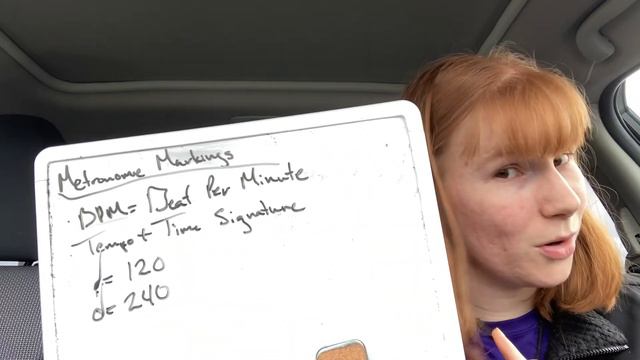 Metronome Markings
BPM = Beat Per Minute
Tempo + Time Signature
♩= 120
𝅗𝅥= 240